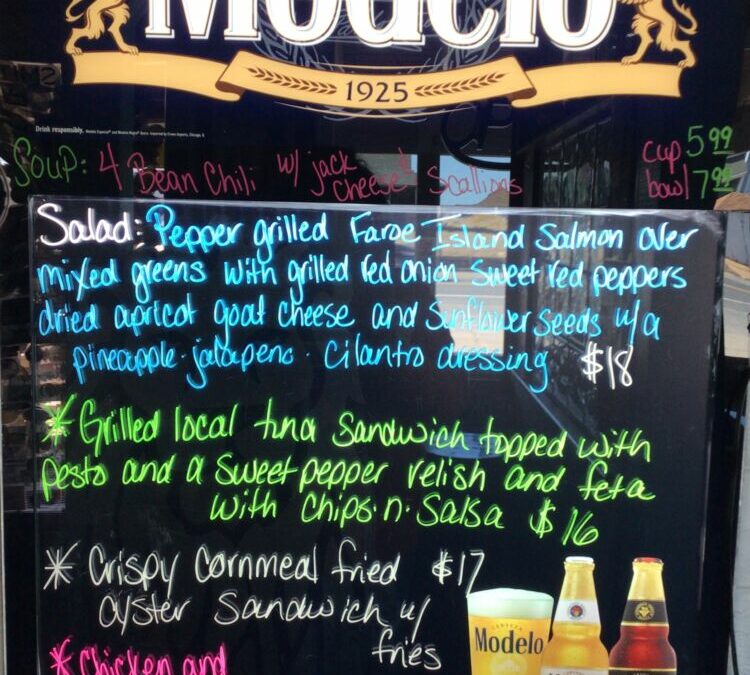 Modelo
1925
Drink responsibly.
Soup: 4 Bean Chili w/ jack cheese & scallions
cup 5.99
bowl 7.99
Salad: Pepper grilled Faroe Island Salmon over
mixed greens with grilled red onion sweet red peppers
dried apricot goat cheese and Sunflower seeds w/a
pineapple·jalapeno·Cilantro dressing $18
* Grilled local tuna Sandwich topped with
pesto and a Sweet pepper relish and feta
with chips·n·Salsa $16
* Crispy Cornmeal fried $17
oyster Sandwich w/
fries
* Chicken and
CERVEZA
Modelo